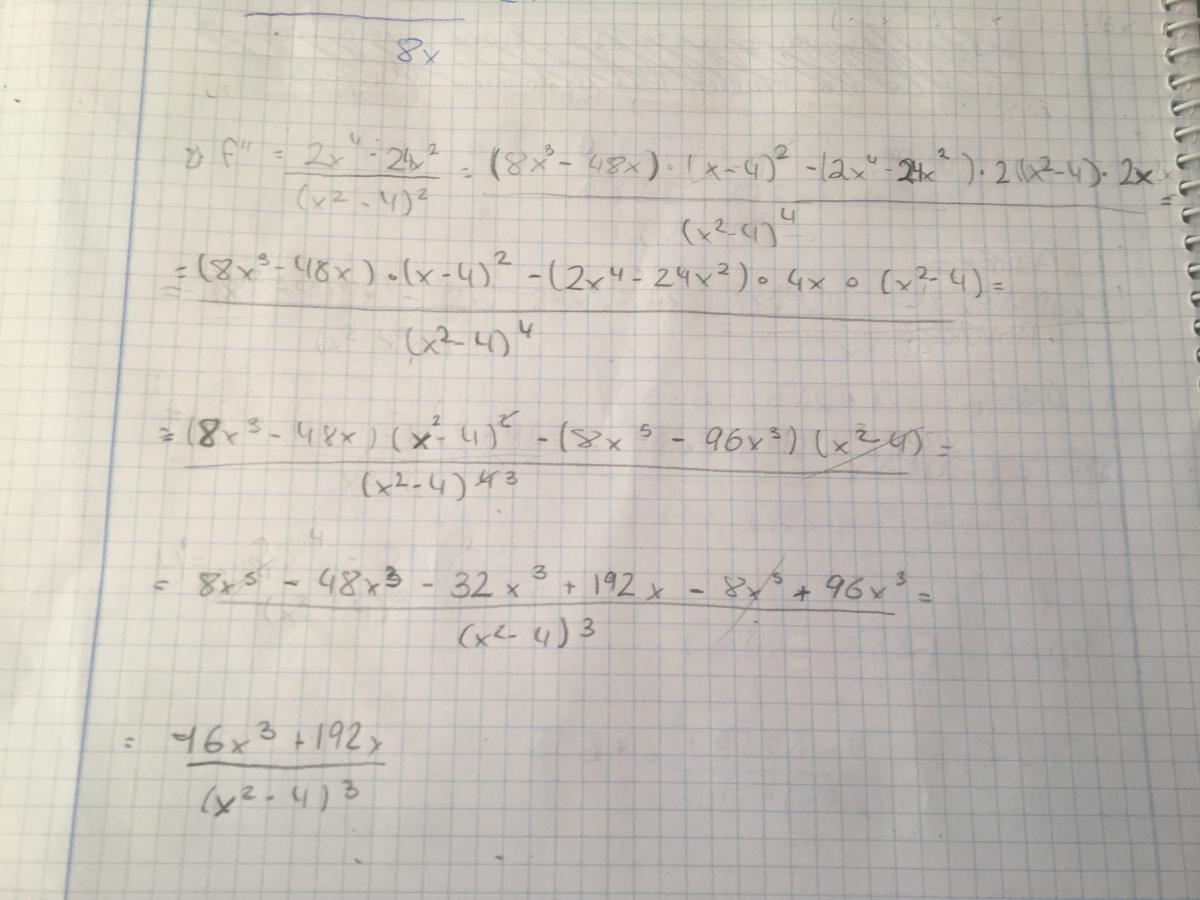 8x
2) f'' = (2x⁴ - 24x²)/((x² - 4)²) = ((8x³ - 48x) · (x - 4)² - (2x⁴ - 24x²) · 2(x² - 4) · 2x)/((x² - 4)⁴) =
= ((8x³ - 48x) · (x - 4)² - (2x⁴ - 24x²) · 4x · (x² - 4))/((x² - 4)⁴) =
= ((8x³ - 48x)(x² - 4)² - (8x⁵ - 96x³)(x² - 4))/((x² - 4)⁴ ³) =
= (8x⁵ - 48x³ - 32x³ + 192x - 8x⁵ + 96x³)/((x² - 4)³) =
= (16x³ + 192x)/((x² - 4)³)